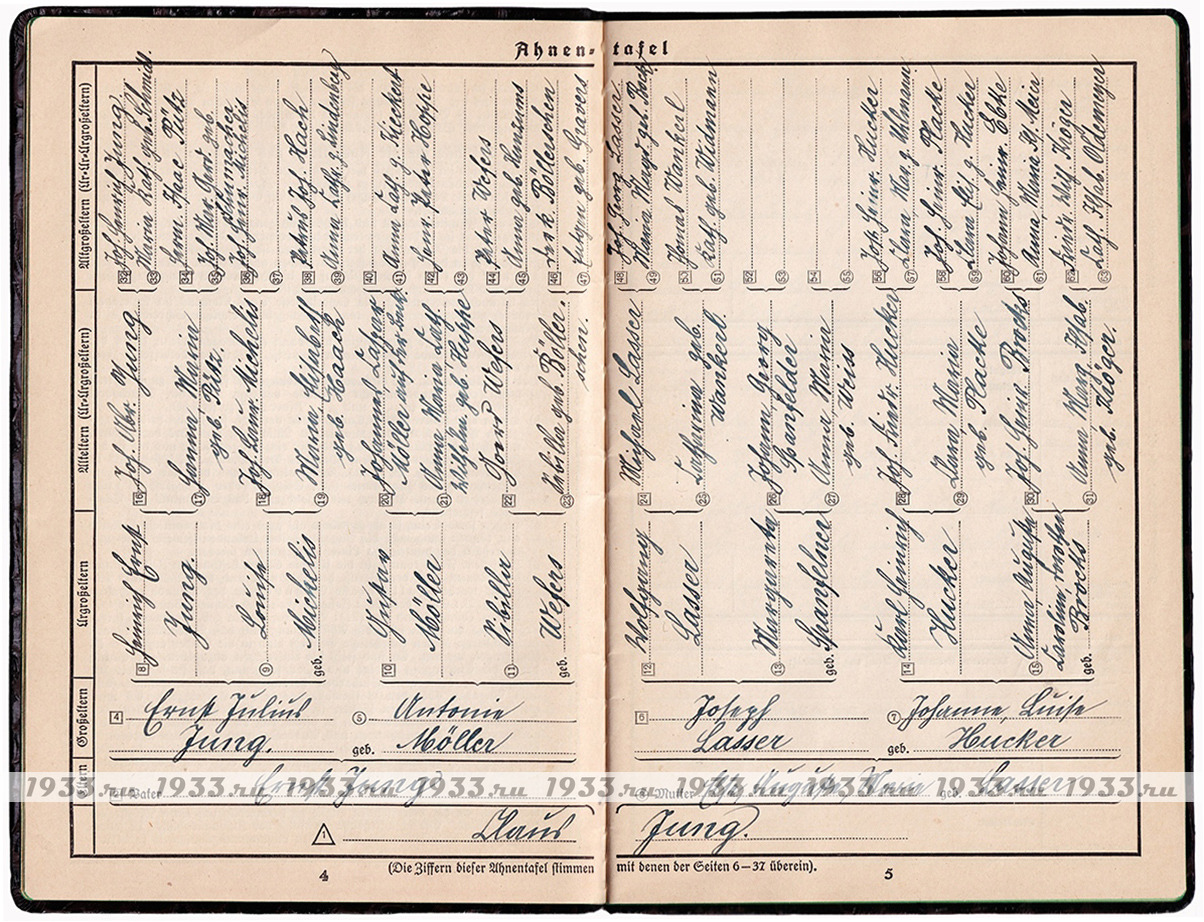 Ahnentafel
Altgroßeltern (Ur-Ur-Urgroßeltern)
32 Joh Heinrich Jung
33 Maria Kath. geb. Schmidt.
34 Herm. Isaac Pütz
35 Joh. Mar. Gert. geb. Schumacher
36 Joh. Heinr. Michelis
37
38 Petrus Jos. Hach
39 Anna Kath. g. Lindenberg
40
41 Anna Kath. g. Kieckert
42 Henr. Peter Hoppe
43
44 Peter Wefers
45 Anna geb.
46 Böllerschen
47 geb. Gravers
48 Joh. Georg Lasser
49 Maria Marg. geb.
50 Thomas Wankerl
51 Kath. geb. Widmann
52
53
54
55
56 Joh. Heinr. Hucker
57 Mar. g. Uhlmann
58 Joh. Heinr. Placke
59 g. Hucker
60 Johann Heinr.
61 Anna Maria
62 Friedr. Wilh. Köger
63 Kath. Ilsab. Oldemeyer
Alteltern (Ur-Urgroßeltern)
16 Joh. Abr. Jung
17 Hanna Maria
geb. Pütz.
18 Joh. Heinr. Michelis
19 Maria Elisabeth
geb. Haach
20 Johannes Caspar
Möller
21 Anna Maria Cath.
Wilhelm. geb. Hoppe
22 Wefers
23 Sibilla geb. Böller-
schen.
24 Michael Lasser
25 Katharina geb.
Wankerl.
26 Johann Georg
Spanfelder
27 Anna Maria
geb. Weis
28 Joh. Friedr. Hucker
29 Maria
geb. Placke
30 Joh. Heinr. Brocks
31 Anna Marg. Ilsab.
geb. Köger.
Urgroßeltern
8 Heinrich Ernst
Jung.
9 Louise
geb. Michelis
10 Gustav
Möller
11 Sibilla
Wefers
12 Wolfgang
Lasser
13 Margaretha
geb. Spanfelner
14 Karl Heinrich
Hucker
15 Anna Auguste
Karoline
geb. Brocks
Großeltern
4 Ernst Julius
Jung.
5 Antonie
geb. Möller
6 Joseph
Lasser
7 Johanne, Luise
geb. Hucker
Eltern
2 Vater Ernst Jung
3 Mutter Auguste, Maria geb. Lasser
1 Claus Jung.
(Die Ziffern dieser Ahnentafel stimmen mit denen der Seiten 6–37 überein).
4
5
1933.ru 1933.ru 1933.ru 1933.ru 1933.ru 1933.ru 1933.ru 1933.ru 1933.ru